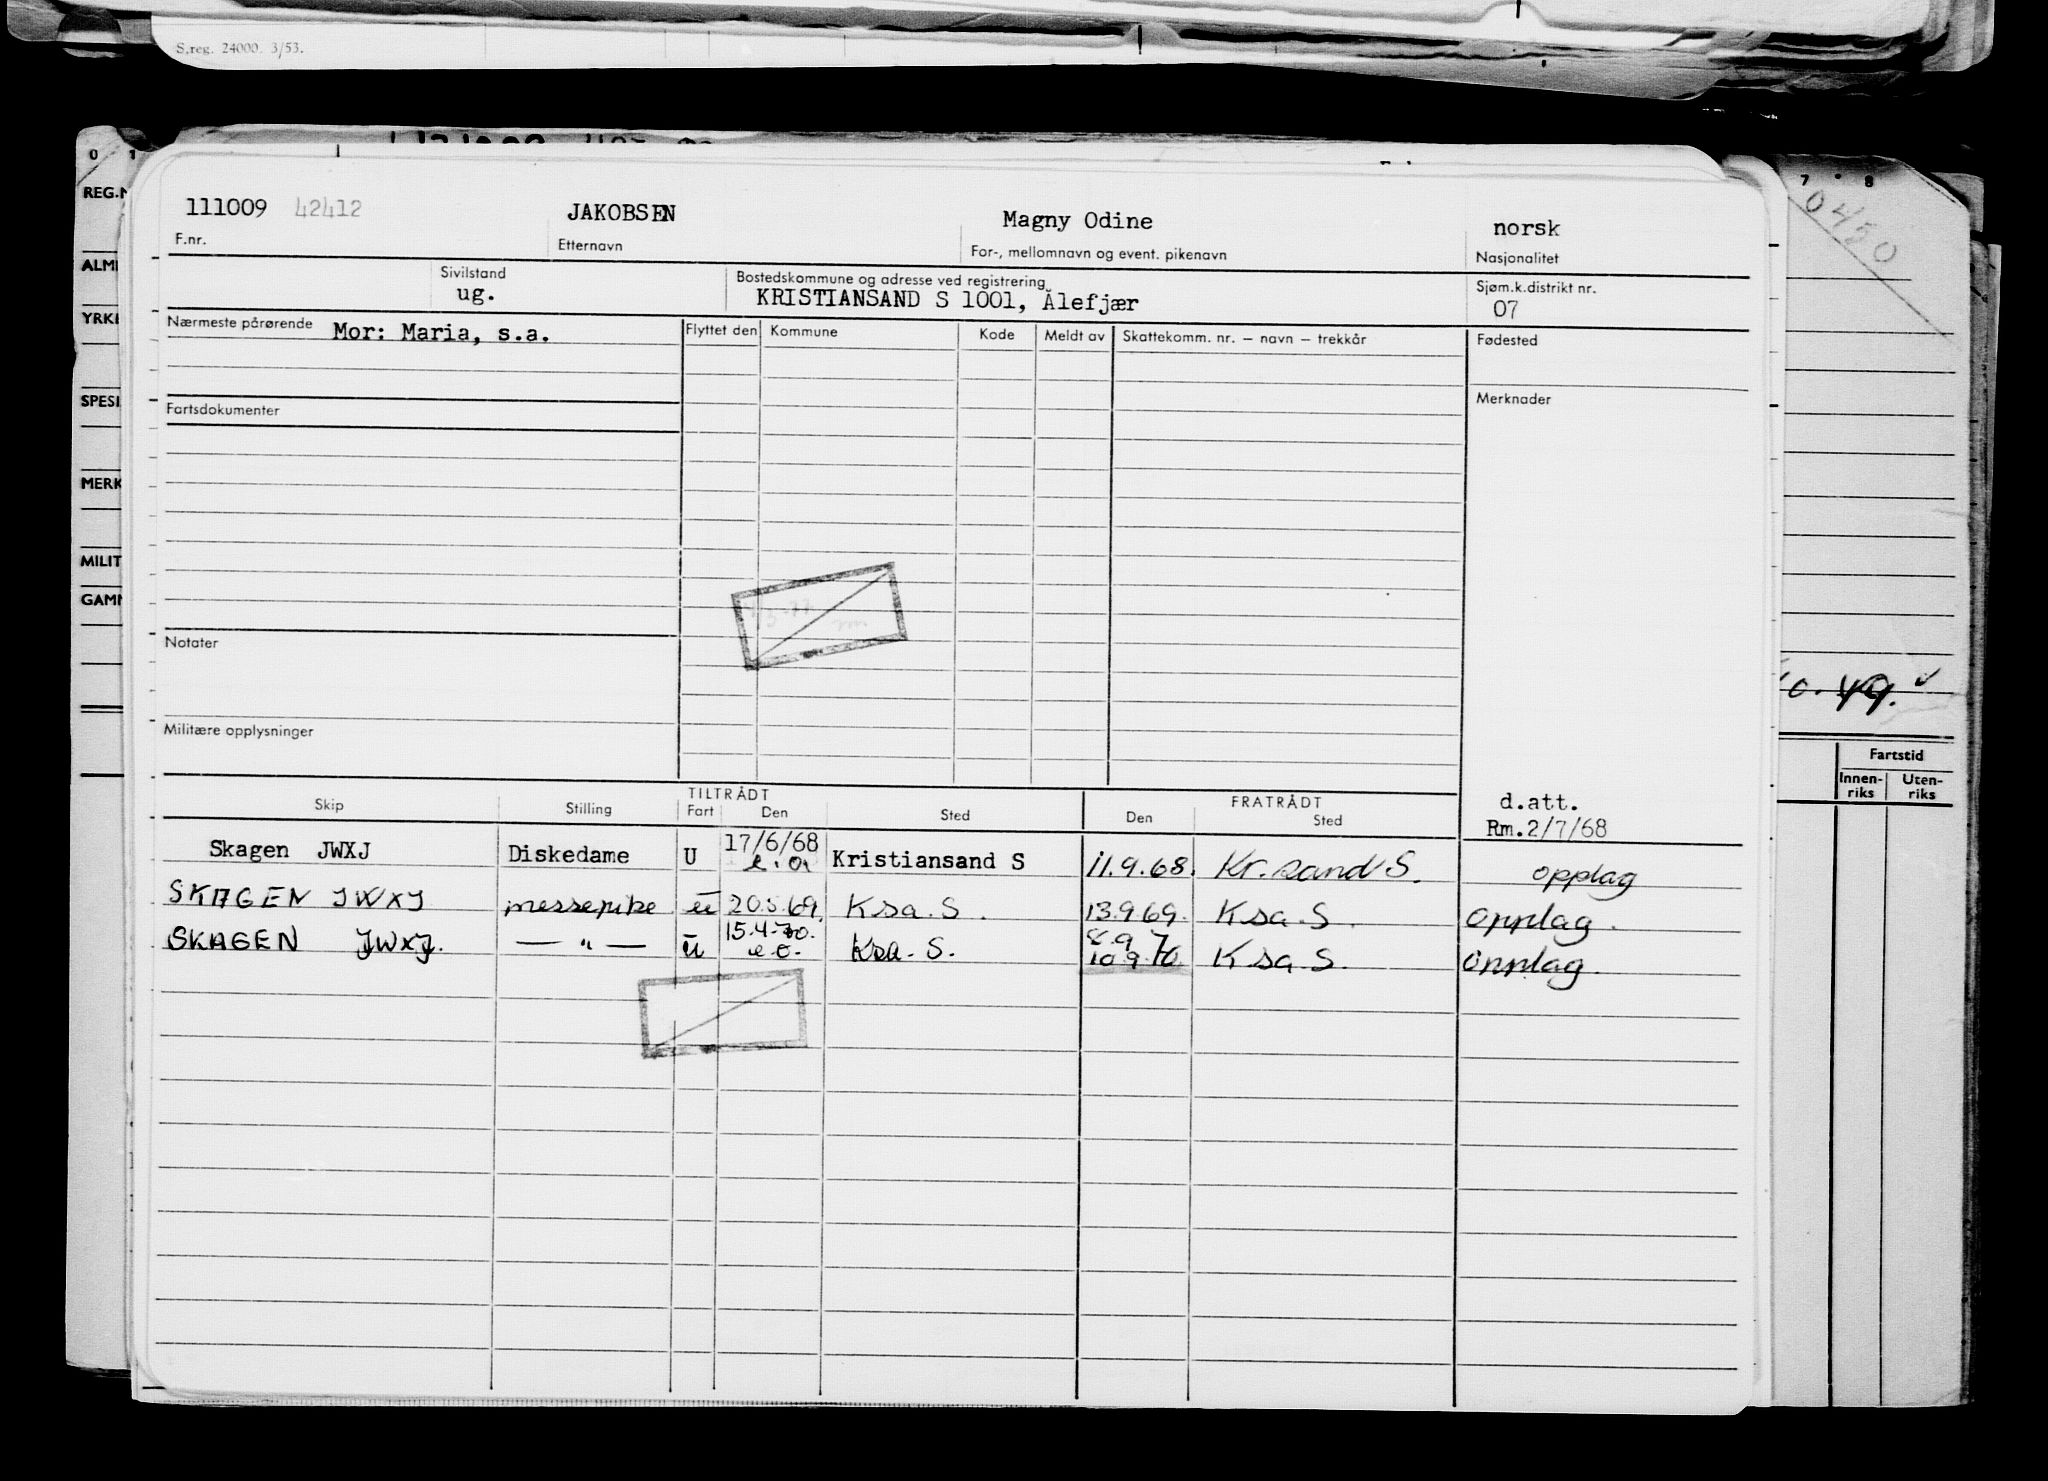 S.reg. 24000. 3/53.
0 1
7 8
REG.N
0450
111009 42412 JAKOBSEN Magny Odine norsk
F.nr. Etternavn For-, mellomnavn og event. pikenavn Nasjonalitet
ALM
Sivilstand Bostedskommune og adresse ved registrering Sjøm.k.distrikt nr.
ug. KRISTIANSAND S 1001, Ålefjær 07
YRKE
Nærmeste pårørende Mor: Maria, s.a. Flyttet den Kommune Kode Meldt av Skattekomm. nr. – navn – trekkår Fødested
SPESI
Fartsdokumenter Merknader
MERK
MILIT
GAMM
Notater
49.
Militære opplysninger
Fartstid
Innen-riks Uten-riks
TILTRÅDT FRATRÅDT d.att.
Skip Stilling Fart Den Sted Den Sted Rm.2/7/68
Skagen JWXJ Diskedame U 17/6/68 e.o. Kristiansand S 11.9.68. Kr.sand S. opplag
SKAGEN JWXJ messepike u 20.5.69. Ksa. S. 13.9.69. Ksa. S. opplag.
SKAGEN JWXJ. — " — u 15.4.70. e.o. Ksa. S. 8.9 10.9.70. Ksa. S. opplag.